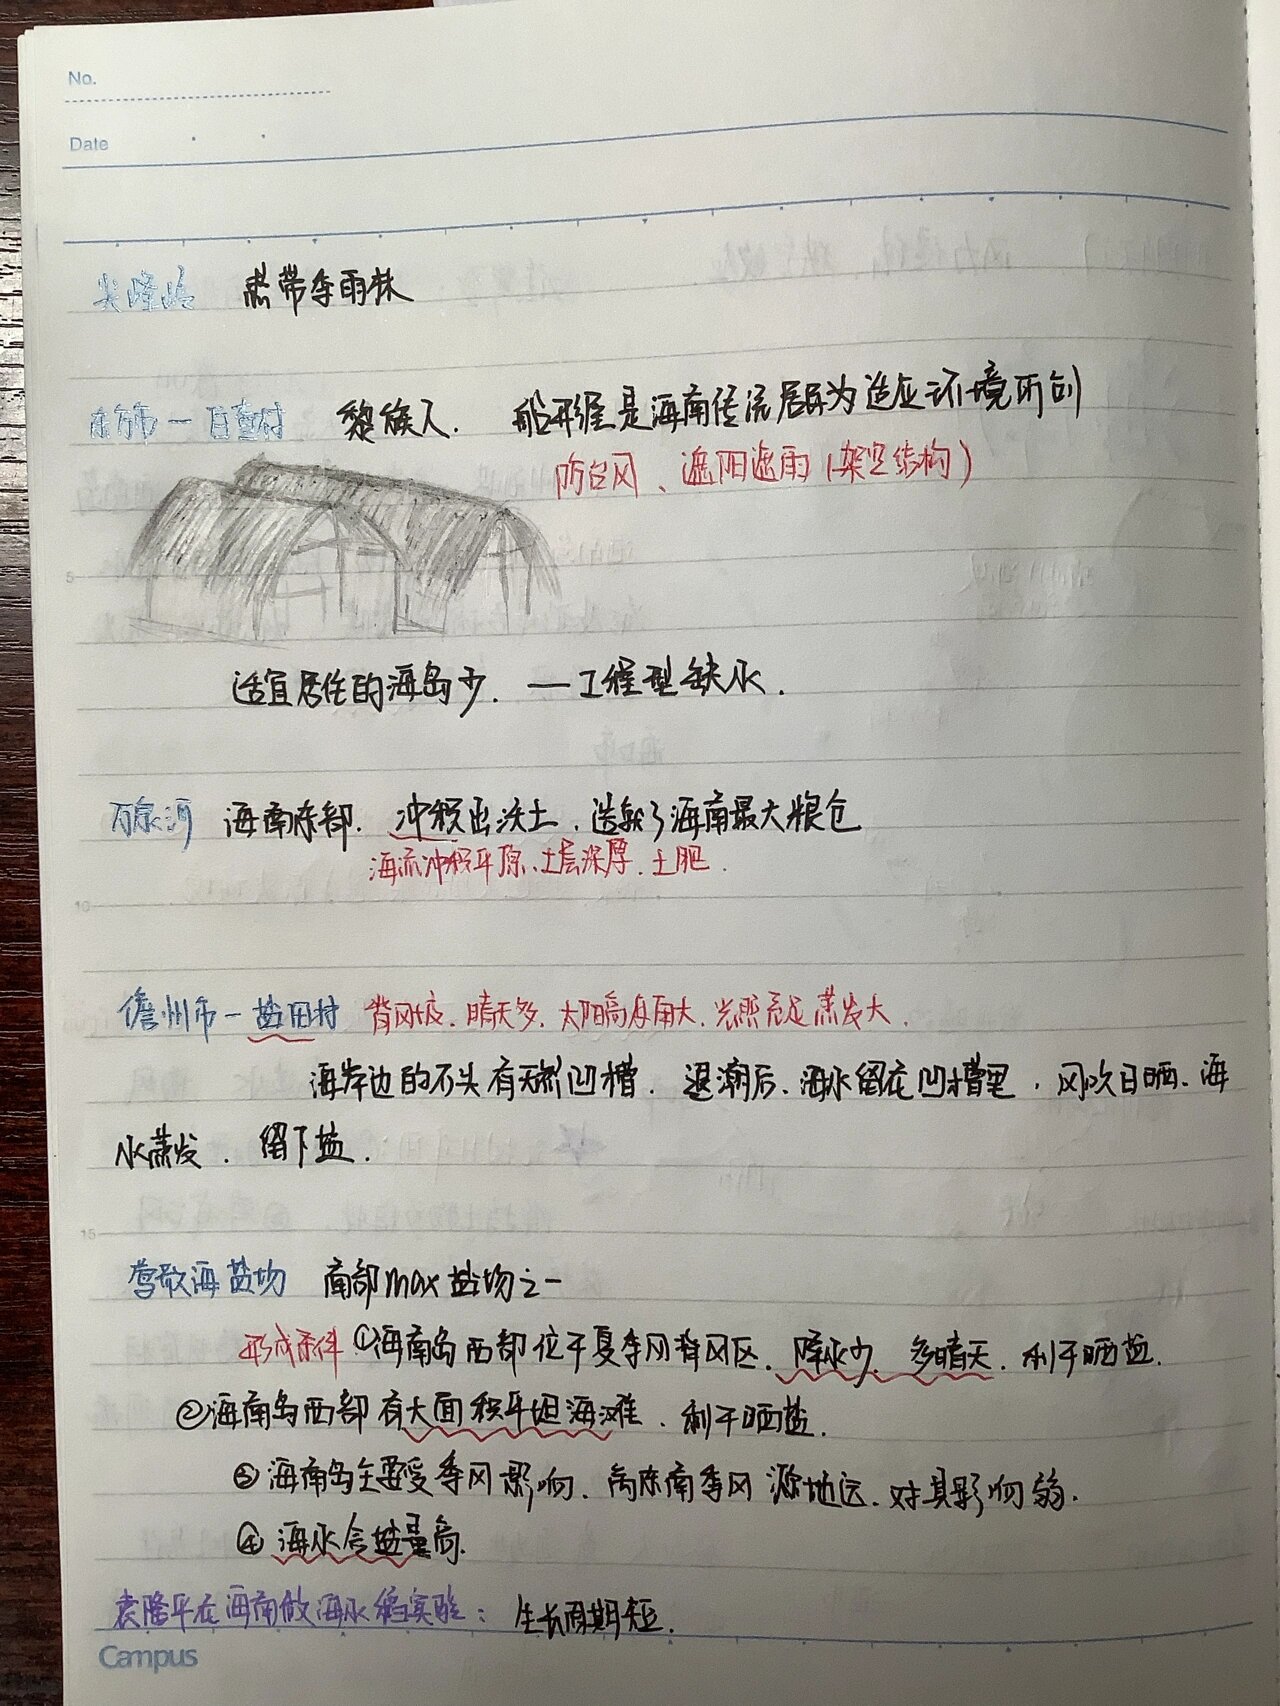 No.
Date
尖峰岭 热带季雨林
东方市一白查村 黎族人. 船形屋是海南传流居民为适应环境所创
防台风、遮阳遮雨(架空结构)
5
适宜居住的海岛少. —工程型缺水.
万泉河 海南东部. 冲积出沃土. 造就了海南最大粮仓
海流冲积平原、土层深厚. 土肥.
10
儋州市一盐田村 背风坡. 晴天多. 太阳高度角大. 光照充足蒸发大.
海岸边的石头有天然凹槽. 退潮后、海水留在凹槽里. 风吹日晒. 海
水蒸发. 留下盐.
15
莺歌海盐场 南部max盐场之一
形成条件 ①海南岛西部位于夏季风背风区. 降水少. 多晴天. 利于晒盐.
②海南岛西部有大面积平坦海滩. 利于晒盐.
③海南岛主要受季风影响. 离东南季风源地远. 对其影响弱.
④海水含盐量高.
袁隆平在海南做海水稻实验: 生长周期短.
Campus